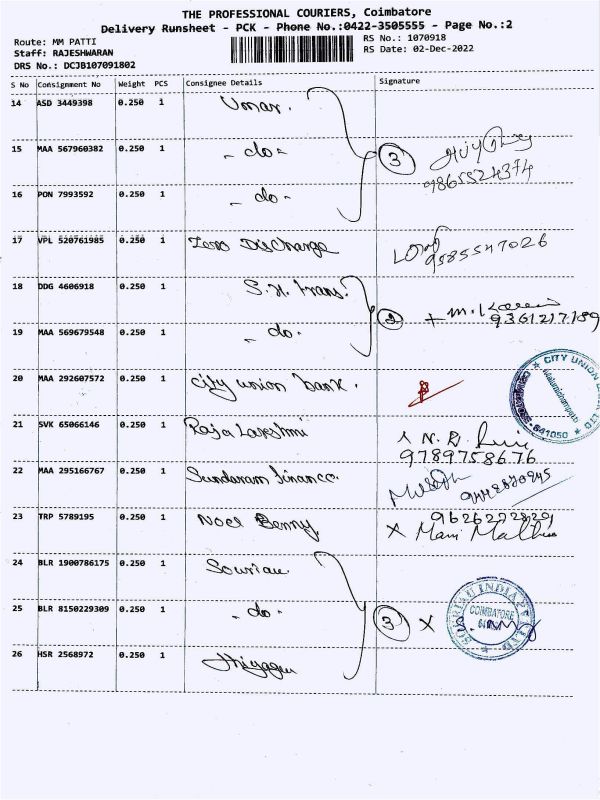 THE PROFESSIONAL COURIERS, Coimbatore
Delivery Runsheet - PCK - Phone No.:0422-3505555 - Page No.:2
Route: MM PATTI
Staff: RAJESHWARAN
DRS No.: DCJB107091802
RS No.: 1070918
RS Date: 02-Dec-2022
S No Consignment No Weight PCS Consignee Details Signature
14 ASD 3449398 0.250 1 Umar.
15 MAA 567960382 0.250 1 - do - 3
9865524374
16 PON 7993592 0.250 1 - do -
17 VPL 520761985 0.250 1 Zero Discharge 9585547026
18 DDG 4606918 0.250 1 S.H. Trans.
2 9361217189
19 MAA 569679548 0.250 1 - do -
20 MAA 292607572 0.250 1 city union bank.
CITY UNION
641050
21 SVK 65066146 0.250 1 Raja Lakshmi
9789758676
22 MAA 295166767 0.250 1 Sundaram finance.
23 TRP 5789195 0.250 1 Noel Benny
X Mani
24 BLR 1900786175 0.250 1 Souriau
25 BLR 8150229309 0.250 1 - do - 3 X
SOURIAU INDIA
COIMBATORE
26 HSR 2568972 0.250 1